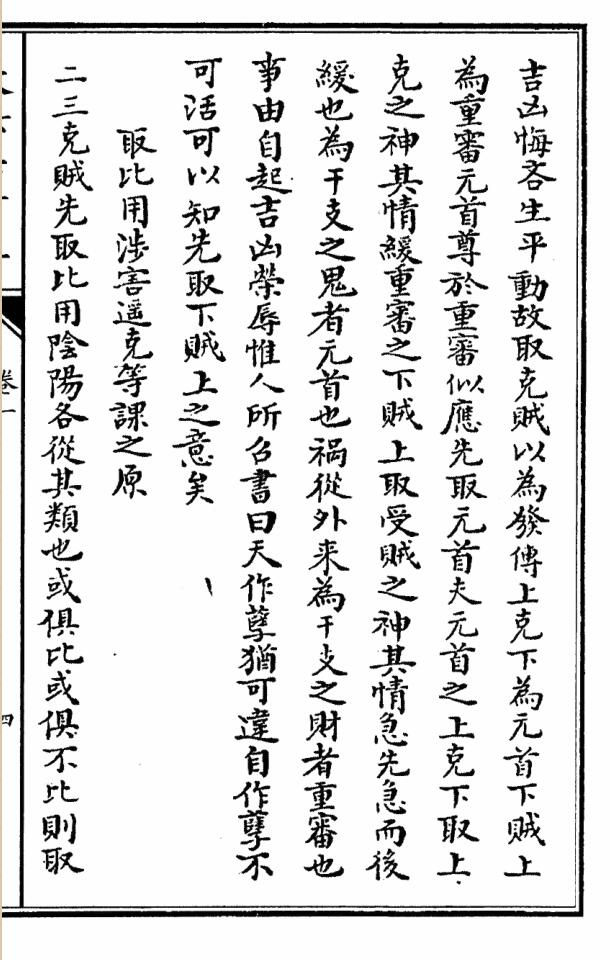 吉凶悔吝生乎動故取克賊以為發傳上克下為元首下賊上
為重審元首尊於重審似應先取元首夫元首之上克下取上
克之神其情緩重審之下賊上取受賊之神其情急先急而後
緩也為干支之鬼者元首也禍從外来為干支之財者重審也
事由自起吉凶榮辱惟人所召書曰天作孽猶可違自作孽不
可活可以知先取下賊上之意矣
取比用涉害遥克等課之原
二三克賊先取比用陰陽各從其類也或俱比或俱不比則取
卷一
四